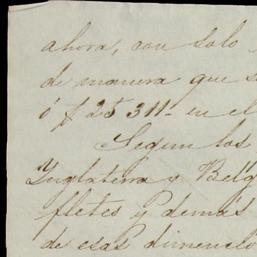 ahora, con solo
de manera que s
ó $25.311- en el
Segun los
Inglaterra y Bélg
fletes y demás
de esas dimensio